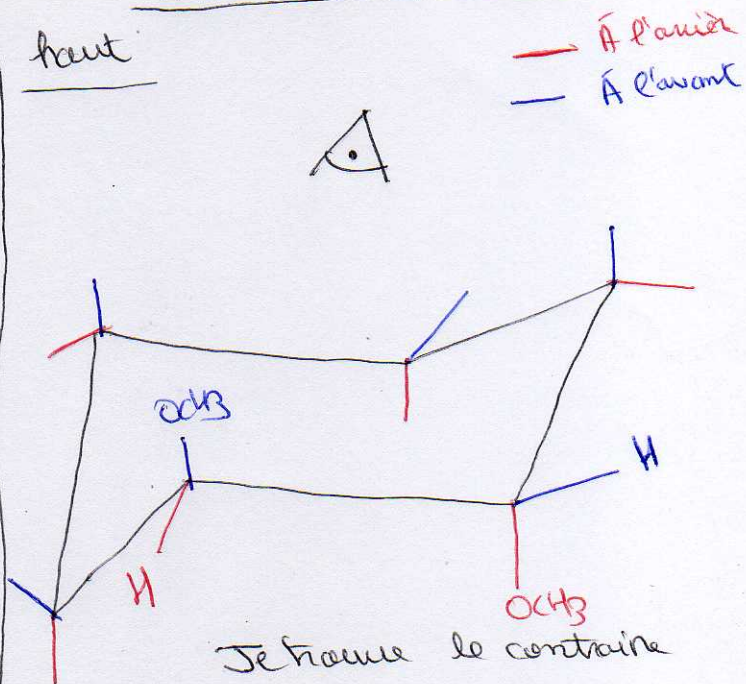 haut
À l'arrière
À l'avant
OCH3
H
H
OCH3
Je trouve le contraire